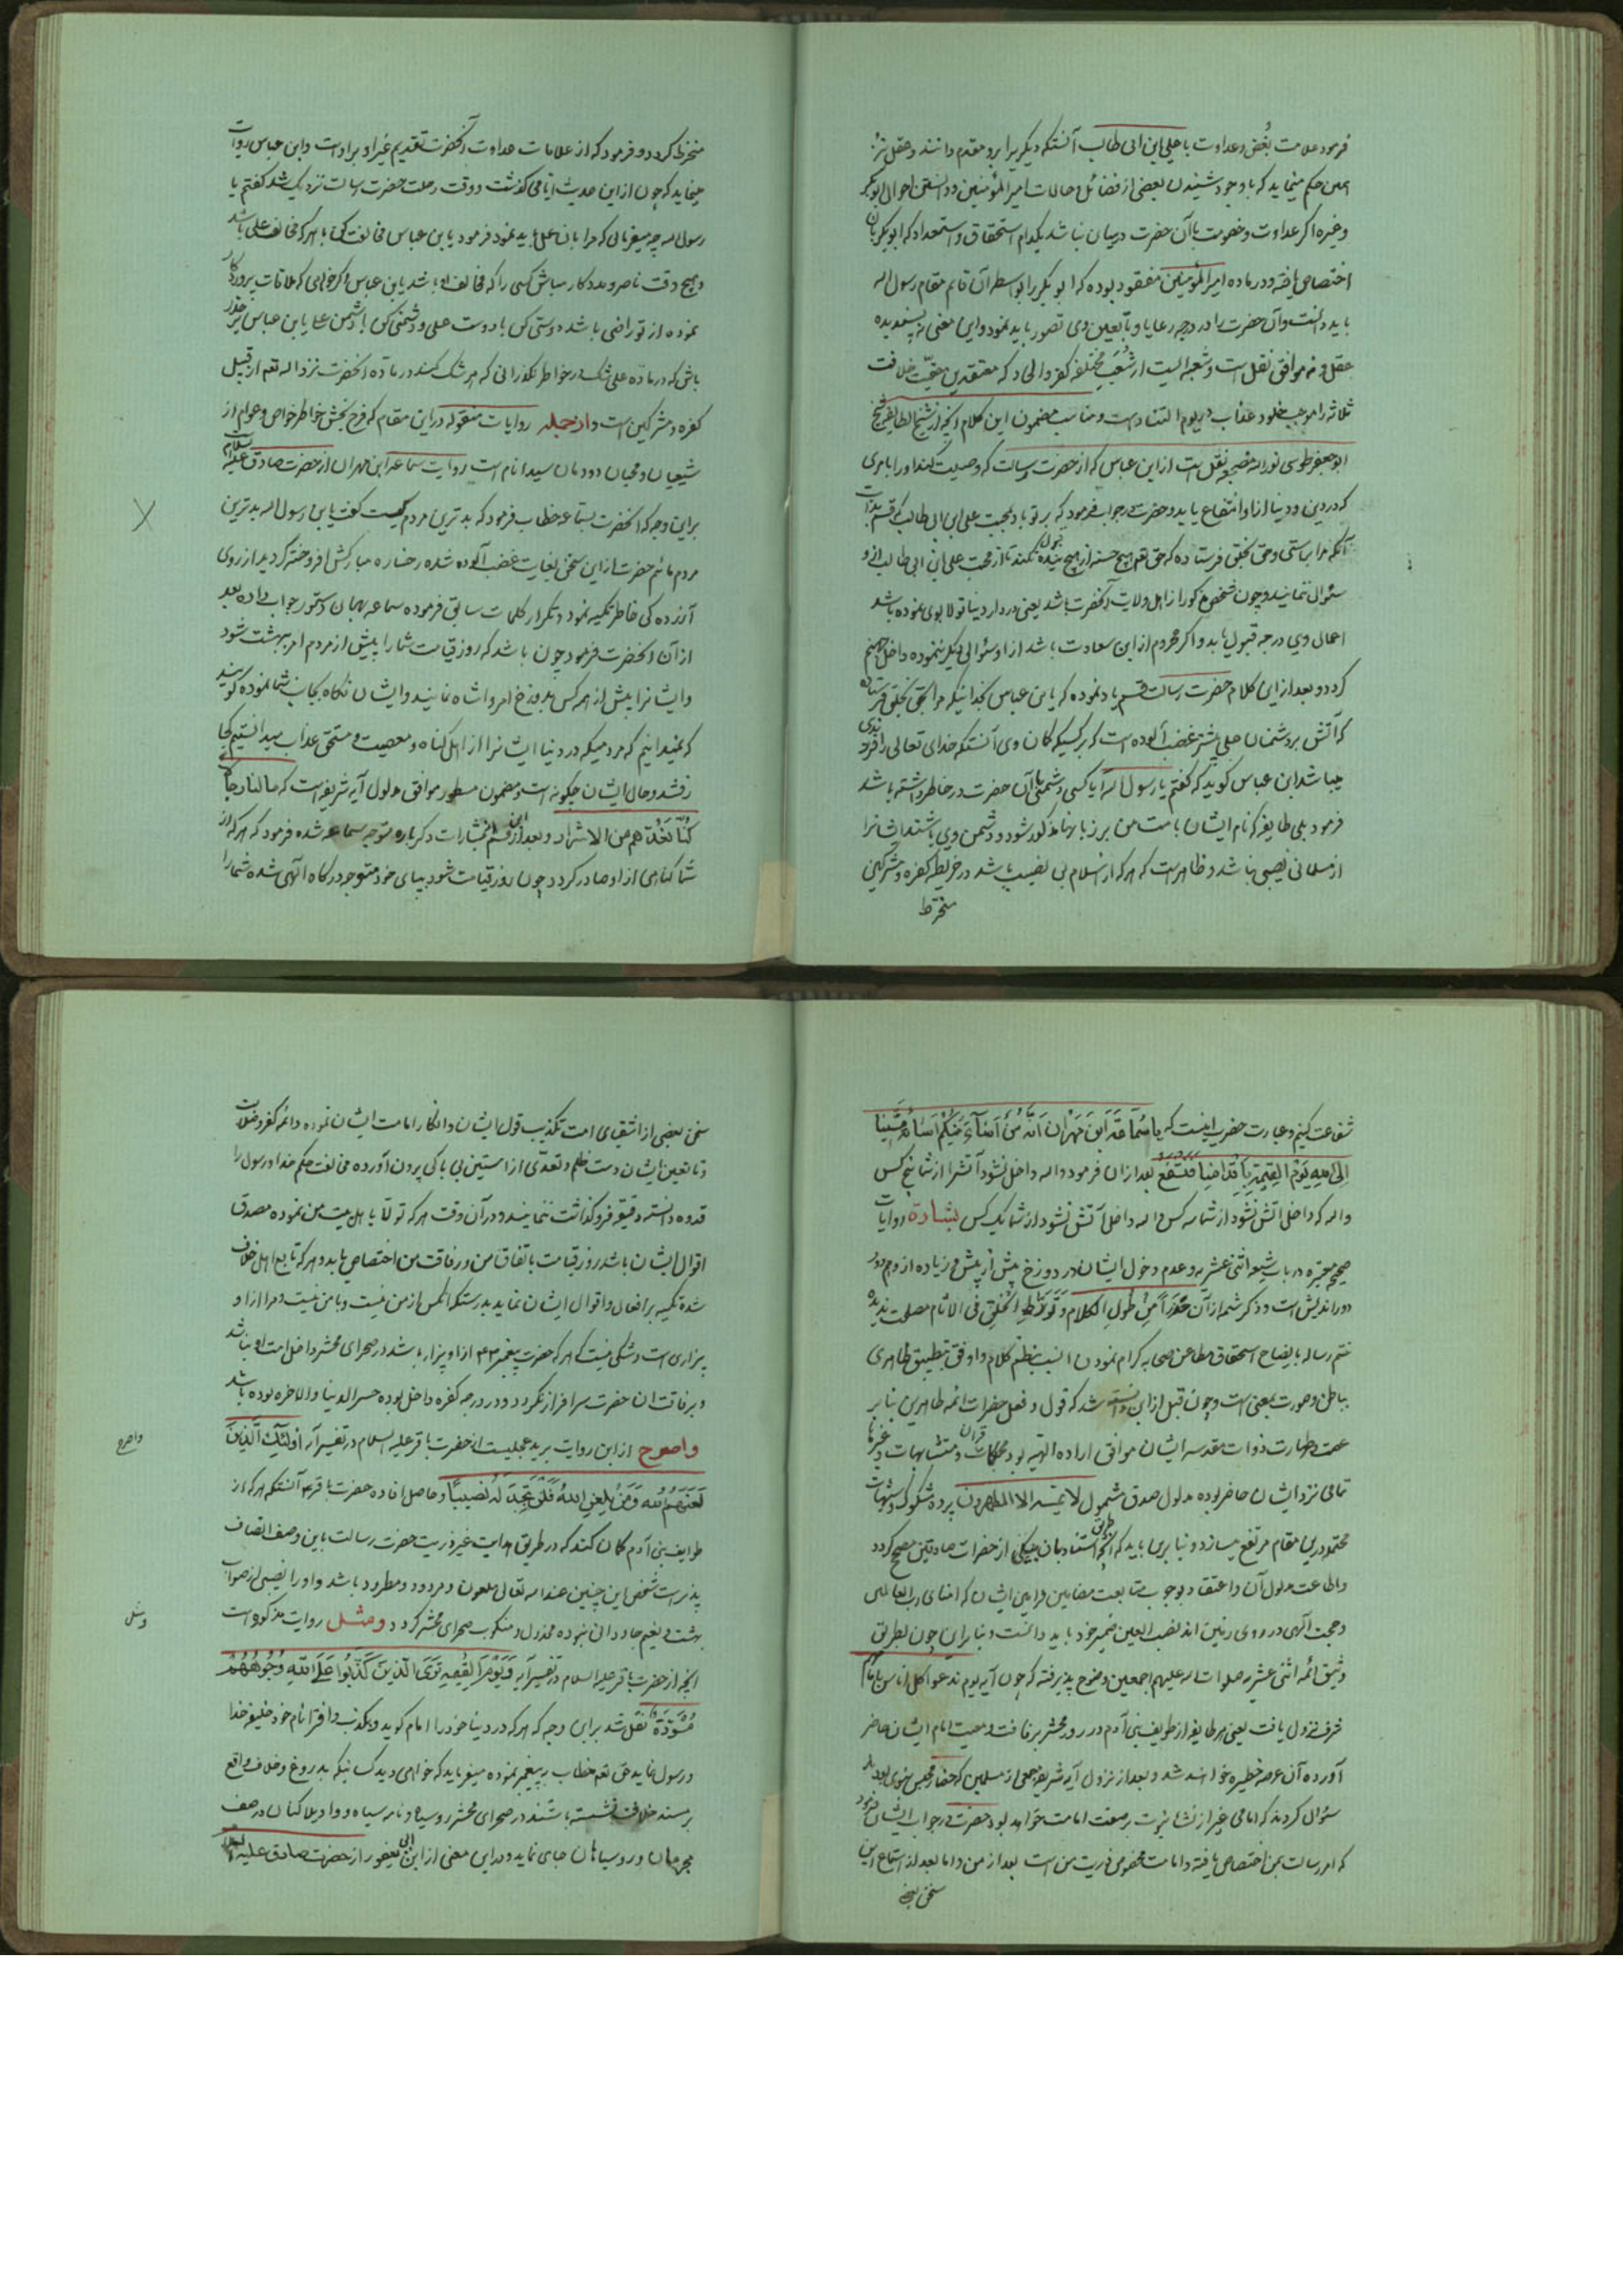 فرمود علامت بُغض و عداوت با علی ابن ابی طالب آنستکه دیگریرا برو مقدم دانند و عقل نیز
همین حکم مینماید که باوجود شنیدن بعضی از فضائل و حالات امیرالمؤمنین و دانستن احوال ابوبکر
و غیره اگر عداوت و خصومت باآن حضرت درمیان نباشد بکدام استحقاق و استعداد که ابوبکر بان
اختصاص یافته و در ماده امیرالمؤمنین مفقود بوده که ابوبکر را بواسطه آن قایم مقام رسول اله
باید دانست وآن حضرت را در درجه رعایا و تابعین وی تصور باید نمود و این معنی نه پسندیده
عقل و نه موافق نقل است و شعبه ایست از شُعَبِ مختلفه کفر و الحاد که معتقدین حقیّت خلافت
ثلاثه را موجب خلود عذاب در یوم التناد است و مناسب مضمون این کلام انچه از شیخ الطایفه شیخ
ابوجعفر طوسی نوراله مضجعه نقل است از ابن عباس که از حضرت رسالت که وصیت کند اورا بامری
که در دین و دنیا ازاو انتفاع یابد و حضرت در جواب فرمود که بر تو باد بمحبت علی ابن ابی طالب که قسم بذات
آنکه مرا براستی و حق بخلق فرستاده که حق تعم هیچ حسنه از هیچ بنده قبول نکند تا از محبت علی ابن ابی طالب ازو
سئوال ننمایند و چون شخص مذکور از اهل ولایت آنحضرت باشد یعنی در دار دنیا تولا بوی نموده باشد
اعمال وی درجه قبول یابد و اکر محروم ازاین سعادت باشد ازاو سئوالی دیگر ننموده داخل جهنم
گردد و بعد ازاین کلام حضرت رسالت قسم یاد نموده که یابن عباس بخدائیکه مرا بحق بخلق فرستاده
که آتش بر دشمنان علی بیشتر غضب آلوده است که بر کسیکه کمان وی آنستکه خدای تعالی را فرزندی
میباشد ابن عباس گوید که گفتم یا رسول اله آیا کسی دشمنی باآن حضرت در خاطر داشته باشد
فرمود بلی طایفه که نام ایشان بامت من بر زبانها مذکور شود و دشمن وی باشند ایشانرا
از مسلمانی نصیبی نباشد و ظاهر است که هرکه از اسلام بی نصیب باشد در خریطه کفره و مشرکین
منخرط
منخرط گردد و فرمود که از علامات عداوت آنحضرت تقدیم غیر او بر اوست و ابن عباس روایت
مینماید که چون ازاین حدیث ایامی گذشت و وقت رحلت حضرت رسالت نزدیک شد گفتم یا
رسول اله چه میفرمائی که مرا بان عمل باید نمود فرمود یابن عباس مخالفت کن با هرکه مخالف علی باشد
و هیچ وقت ناصر و مددکار مباش کسی را که مخالف او باشد یابن عباس اکر خواهی که ملاقات پروردگار
نموده از تو راضی باشد دوستی کن با دوست علی و دشمنی کن با دشمن علی یابن عباس بر حذر
باش که در ماده علی شک در خاطر نگذرانی که هر شک کننده در ماده آنحضرت نزد اله تعم از قبیل
کفره و مشرکین است و ازجمله روایات منقوله دراین مقام که فرح بخش خواطر خواص و عوام از
شیعیان و محبان دودمان سید انام است روایت سماعه ابن مهران از حضرت صادق علیه السلام
براین وجه که آنحضرت بسماعه خطاب فرمود که بدترین مردم کیست گفت یابن رسول اله بدترین
مردم مائیم حضرت ازاین سخن بغایت غضب آلوده شده رخساره مبارکش افروخته گردید از روی
آزرده کی خاطر تکیه نمود و تکرار کلمات سابق فرموده سماعه بهمان دستور جواب داده بعد
ازآن آنحضرت فرمود چون باشد که روز قیامت شما را پیش از مردم امر ببهشت شود
وایشانرا پیش از همه کس بدوزخ امر واشاه نمایند وایشان نگاه بجانب شما نموده گویند
که نمیدانیم که مردمیکه در دنیا ایشانرا از اهل گناه و معصیت و مستحق عذاب میدانستیم کجا
رفتند و حال ایشان چگونه است و مضمون مسطور موافق مدلول آیه شریفه است که مالنا لا نری رجالاً
کُنّا نَعُدُّهم من الاشرار و بعد از این قسم اشارات دکر باره متوجه سماعه شده فرمود که هرکه از
شما گناهی ازاو صادر گردد چون روز قیامت شود بپای خود متوجه درگاه آلهی شده شما را
شفاعت کنیم وعبارت حضرت اینست که یا سُمَاعَةَ ابنَ مَهْران اَنَّهُ مَنْ اَسَآءَ مِنْکُم اِسَاءَةً مَشَینا
اِلَی اللهِ یَوْمَ القِیمَةِ بِاَقْدامِنا فَنَشْفَعُ بعد ازان فرمود واله داخل نشود آتشرا از شما پنج کس
واله که داخل آتش نشود از شما سه کس واله داخل آتش نشود از شما یک کس بشارة روایات
صحیحه معتبره در باب شیعه اثنی عشریه و عدم دخول ایشان در دوزخ پیش از پیش و زیاده از وهم دور
دوراندیش است و ذکر شمه ازآن حَذَراً مِنْ طُولِ الکلام وَتَوَرُّطِ الخَلقِ فی الآثام مصلحت ندیده
ختم رساله بایضاح استحقاق مطاعن صحابه کرام نمودن انسب بنظم کلام و اوفق بتطبیق ظاهری
بباطن و صورت بمعنی است وچون قبل ازاین دانسته شد که قول و فعل حضرات ائمه طاهرین بنابر
عصمت و طهارت ذوات مقدسه ایشان موافق اراده الهیه بود و محکمات قرآن و متشابهات و غیرها
تمامی نزد ایشان حاضر بوده مدلول صدق مشمول لا یمسّه الا المطهرون پرده شکوک و شبهات
محتمله دراین مقام مرتفع میسازد و بنابراین باید که انچه استناد بان بطریق از حضرات صادقین صحیح گردد
واطاعت مدلول آن واعتقاد بوجوب متابعت مضامین فرامین ایشان که امنای رب العالمین
وحجت آلهی در روی زمین اند نصب العین ضمیر خود باید دانست و بنابراین چون بطریق
وثیق ائمه اثنی عشریه صلوات اله علیهم اجمعین وضوح پذیرفته که چون آیه یوم ندعوا کل اناس بامامهم
شرف نزول یافت یعنی هر طایفه از طوایف بنی آدم در روز محشر برفاقت و معیت امام ایشان حاضر
آورده آن عرصه خطیره خواهند شد و بعد از نزول آیه شریفه جمعی از مسلمین که حضار مجلس نبوی بودند
سئوال کردند که امامی غیر از نشاء نبوت بصفت امامت خواهد بود حضرت در جواب ایشان فرمود
که امر رسالت بمن اختصاص یافته و امامت مخصوص ذریت من است بعد از من و اما بعد از استماع این
سخن بعضی
سخن بعضی از اشقیای امت تکذیب قول ایشان و انکار امامت ایشان نموده و ائمه کفر و ضلالت
و تابعین ایشان دست ظلم و تعدّی از استین بی باکی بیرون آورده مخالفت حکم خدا و رسول را
قدوه دانسته دقیقه فروگذاشت ننمایند و درآن وقت هرکه تولّا باهل بیت من نموده مصدق
اقوال ایشان باشد روز قیامت باتفاق من و رفاقت من اختصاص یابد و هرکه تابع اهل خلاف
شده تکیه بر افعال و اقوال ایشان نماید بدرستیکه آنکس از من نیست و با من نیست و مرا ازاو
بیزاری است و شکی نیست که هرکه حضرت پیغمبر ازاو بیزار باشد در صحرای محشر داخل امت او نباشد
و برفاقت ان حضرت سرافراز نگردد و در درجه کفره داخل بوده خسر الدنیا والاخره بوده باشد
واصرح ازاین روایت برید عجلیست از حضرت باقر علیه السلام در تفسیر آیه اُولئِکَ الَّذینَ
لَعَنَهُمُ اللهُ وَمَنْ یَلْعَنِ اللهُ فَلَنْ تَجِدَ لَهُ نَصیبًا وحاصل افاده حضرت باقر آنستکه هرکه از
طوایف بنی آدم گمان کند که در طریق هدایت غیر ذریت حضرت رسالت باین وصف اتصاف
پذیراست شخص این چنین عنداله تعالی ملعون و مردود و مطرود باشد و اورا نصیبی از ثواب
بهشت و نعیم جاودانی نبوده مخذول و منکوب صحرای محشر گردد ومثل روایت مذکوره است
انچه از حضرت باقر علیه السلام در تفسیر آیه وَیَوْمَ الْقِیمَةِ تَرَی الَّذینَ کَذَبُوا عَلَی اللهِ وُجُوهُهُمْ
مُسْوَدَّةٌ نقل شد براین وجه که هرکه در دنیا خود را امام گوید و بکذب و افترا نام خود خلیفه خدا
و رسول نماید حق تعم خطاب به پیغمبر نموده میفرماید که خواهی دید کسانیکه بدروغ و خلاف واقع
بر مسند خلافت نشسته باشند در صحرای محشر روسیاه و نامه سیاه و واویلا کنان در صف
مجرمان و روسیاهان جای نماید و دراین معنی از ابن ابی یعفور از حضرت صادق علیه السلام
واصرح
ومثل